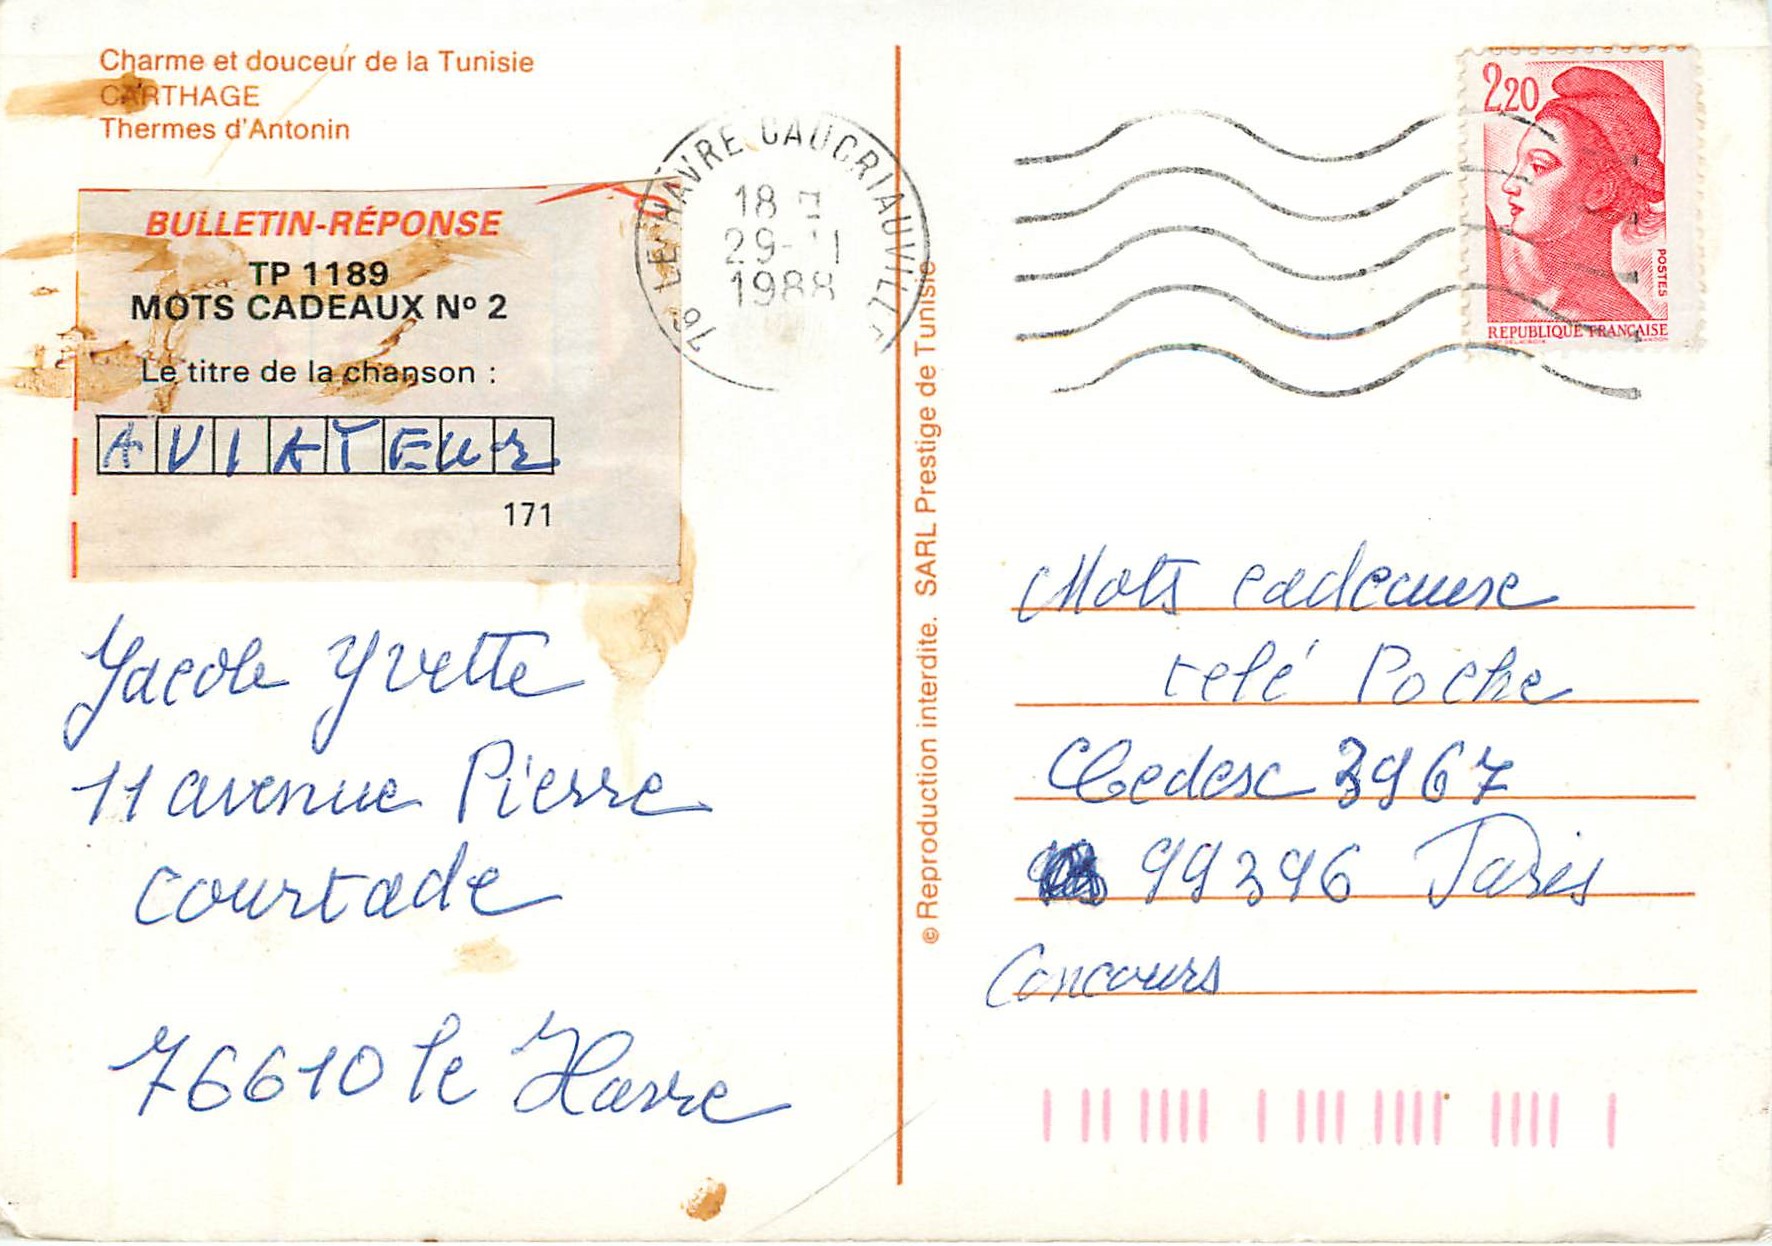 Charme et douceur de la Tunisie
CARTHAGE
Thermes d'Antonin
BULLETIN-RÉPONSE
TP 1189
MOTS CADEAUX Nº 2
Le titre de la chanson :
AVIATEUR
171
Yacole Yvette
11 avenue Pierre
Courtade
76610 le Havre
76 LE HAVRE CAUCRIAUVILLE
18 H
29-11
1988
© Reproduction interdite. SARL Prestige de Tunisie
2,20
POSTES
REPUBLIQUE FRANÇAISE
Mots cadeause
telé Poche
Cedesc 3967
99396 Paris
Concours